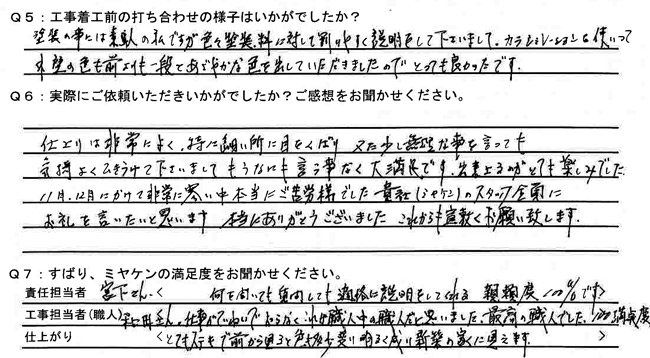 Q5：工事着工前の打ち合わせの様子はいかがでしたか？
塗装の事には素人の私ですが色々塗装、料に対して判りやすく説明をして下さいまして。カラーシュミレーションを使いって
希望の色も前よりも一段とあざやかな色を出していただきましたのでとっても良かったです。
Q6：実際にご依頼いただきいかがでしたか？ご感想をお聞かせください。
仕上りは非常によく、特に細い所に目をくばり 又た少し無理な事を言っても
気持よくひきうけて下さいまして もうなにも言う事なく大満足です。出来上るのがとても楽しみでした。
11月、12月にかけて非常に寒い中本当にご苦労様でした 貴社(ミヤケン)のスタッフ全員に
お礼を言いたいと思います 本当にありがとうございました これからも宜敷くお願い致します。
Q7：ずばり、ミヤケンの満足度をお聞かせください。
責任担当者 宮下さん。＜ 何を聞いても質問しても適格に説明をしてくれる 親頼度100%です＞
工事担当者（職人） さん。仕事がていねいで これが職人中の職人だと思いました、最高の職人でした。100満点度
仕上がり ＜とてもステキで前から見ると色も変り明るく成り新築の家に見えます。